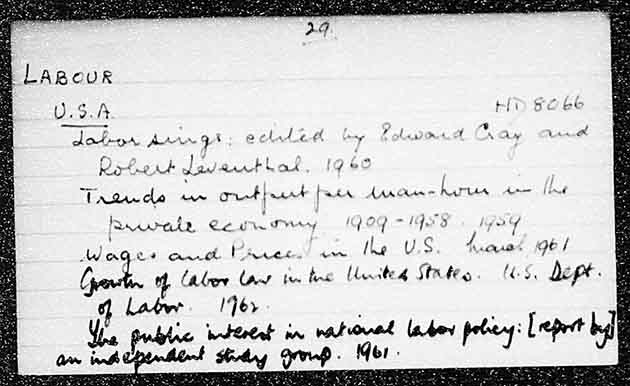 29.
LABOUR
U.S.A. HD 8066
Labor sings: edited by Edward Cray and
Robert Leventhal. 1960
Trends in output per man-hour in the
private economy 1909-1958. 1959
Wages and Prices in the U.S. March 1961
Growth of labor law in the United States. U.S. Dept.
of Labor. 1962.
The public interest in national labor policy: [report by]
an independent study group. 1961.